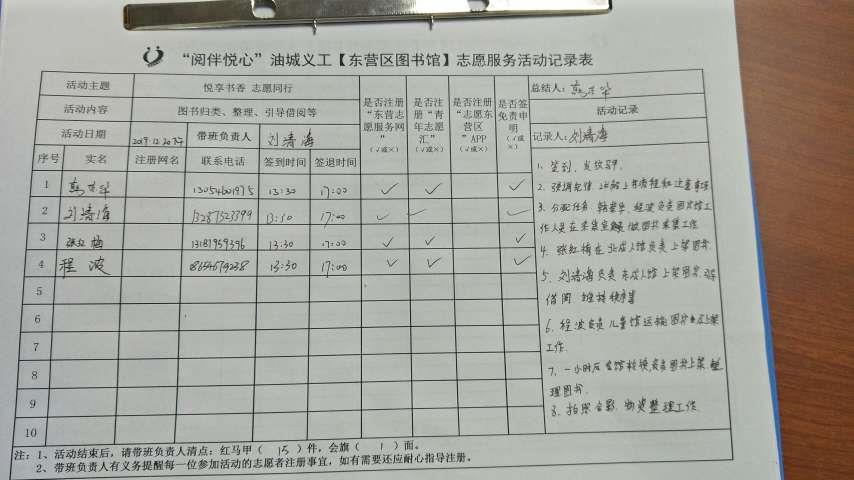 “阅伴悦心”油城义工【东营区图书馆】志愿服务活动记录表
活动主题 悦享书香 志愿同行
活动内容 图书归类、整理、引导借阅等
活动日期 2019.12.20 带班负责人 刘清海
序号 实名 注册网名 联系电话 签到时间 签退时间
是否注册“东营志愿服务网”(√或×)
是否注册“青年志愿汇”(√或×)
是否注册“志愿东营区”APP(√或×)
是否签免责申明(√或×)
总结人:
活动记录
记录人:刘清海
1 13054601975 13:30 17:00 √ √ √
2 刘清海 13287523399 13:30 17:00 √ √ √
3 张红梅 13181959396 13:30 17:00 √ √ √
4 程波 18654679238 13:30 17:00 √ √ √
5
6
7
8
9
10
1、签到、发放马甲.
2、强调纪律
3、分配任务 程波负责图书馆工
作人员在采集室做图书采集工作
4、张红梅在北成人馆负责上架图书.
5、刘清海负责东成人馆上架图书.
借阅 维持秩序
6、程波负责儿童馆运输图书 上架
工作.
7、一小时后 负责图书上架 整
理图书.
8、拍照合影.物资整理工作.
注:1、活动结束后,请带班负责人清点:红马甲( 15 )件,会旗( 1 )面。
2、带班负责人有义务提醒每一位参加活动的志愿者注册事宜,如有需要还应耐心指导注册。